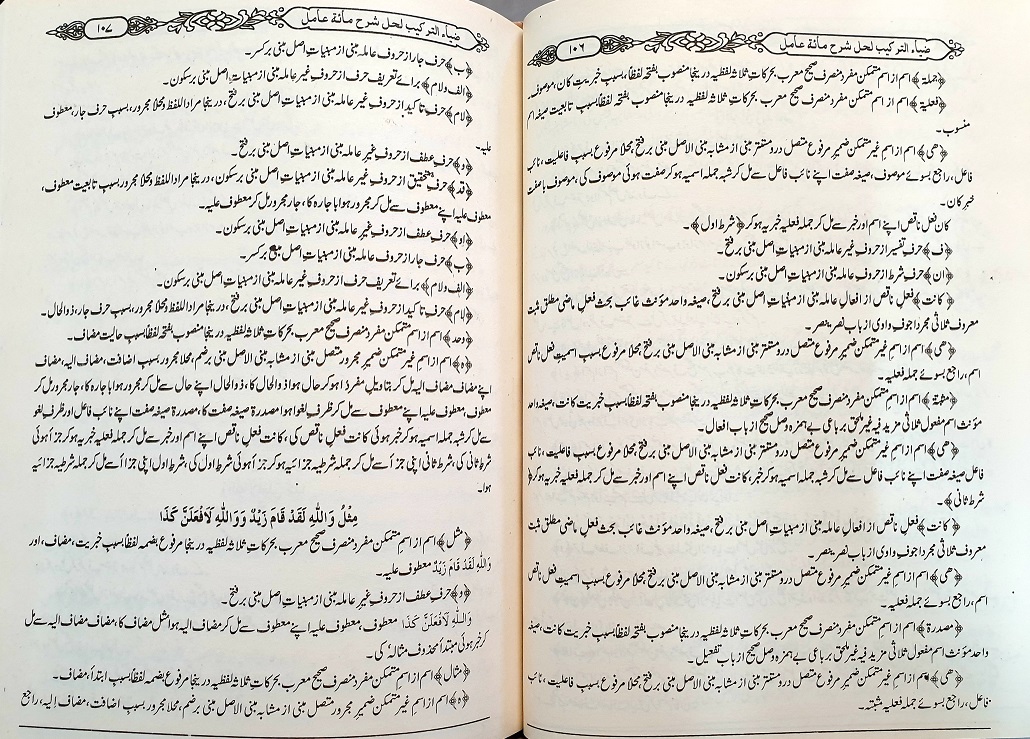 ضیاء الترکیب لحل شرح مائة عامل ۱۰۶
﴿جملة﴾ اسم از اسم متمکن مفرد منصرف صحیح معرب بحرکات ثلاثہ لفظیہ درینجا منصوب بفتحہ لفظاً بسبب خبریت کان، موصوف۔
﴿فعلیة﴾ اسم از اسم متمکن مفرد منصرف صحیح معرب بحرکات ثلاثہ لفظیہ درینجا منصوب بفتحہ لفظاً بسبب تابعیت صیغہ اسم
منسوب۔
﴿هی﴾ اسم از اسم غیر متمکن ضمیر مرفوع متصل درو مستتر مبنی از مشابہ مبنی الاصل مبنی برفتح، محلاً مرفوع بسبب فاعلیت، نائب
فاعل، راجع بسوئے موصوف، صیغہ صفت اپنے نائب فاعل سے مل کر شبہ جملہ اسمیہ ہو کر صفت ہوئی موصوف کی، موصوف با صفت
خبر کان۔
کان فعل ناقص اپنے اسم اور خبر سے مل کر جملہ فعلیہ خبریہ ہو کر ﴿شرط اول﴾۔
﴿ف﴾ حرف تفسیر از حروف غیر عاملہ مبنی از مبنیات اصل مبنی برفتح۔
﴿ان﴾ حرف شرط از حروف عاملہ مبنی از مبنیات اصل مبنی برسکون۔
﴿کانت﴾ فعل ناقص از افعال عاملہ مبنی از مبنیات اصل مبنی برفتح، صیغہ واحد مؤنث غائب بحث فعل ماضی مطلق مثبت
معروف ثلاثی مجرد اجوف واوی از باب نصر ینصر۔
﴿هی﴾ اسم از اسم غیر متمکن ضمیر مرفوع متصل درو مستتر مبنی از مشابہ مبنی الاصل مبنی برفتح محلاً مرفوع بسبب اسمیت فعل ناقص
اسم، راجع بسوئے جملہ فعلیہ۔
﴿مثبتة﴾ اسم از اسم متمکن مفرد منصرف صحیح معرب بحرکات ثلاثہ لفظیہ درینجا منصوب بفتحہ لفظاً بسبب خبریت کانت، صیغہ واحد
مؤنث اسم مفعول ثلاثی مزید فیہ غیر ملحق برباعی بے ہمزہ وصل صحیح از باب افعال۔
﴿هی﴾ اسم از اسم غیر متمکن ضمیر مرفوع متصل درو مستتر مبنی از مشابہ مبنی الاصل مبنی برفتح، محلاً مرفوع بسبب فاعلیت، نائب
فاعل صیغہ صفت اپنے نائب فاعل سے مل کر شبہ جملہ اسمیہ ہو کر خبر، کانت فعل ناقص اپنے اسم اور خبر سے مل کر جملہ فعلیہ خبریہ ہو کر ﴿
شرط ثانی﴾۔
﴿کانت﴾ فعل ناقص از افعال عاملہ مبنی از مبنیات اصل مبنی برفتح، صیغہ واحد مؤنث غائب بحث فعل ماضی مطلق مثبت
معروف ثلاثی مجرد اجوف واوی از باب نصر ینصر۔
﴿هی﴾ اسم از اسم غیر متمکن ضمیر مرفوع متصل درو مستتر مبنی از مشابہ مبنی الاصل مبنی برفتح محلاً مرفوع بسبب اسمیت فعل ناقص
اسم، راجع بسوئے جملہ فعلیہ۔
﴿مصدرة﴾ اسم از اسم متمکن مفرد منصرف صحیح معرب بحرکات ثلاثہ لفظیہ درینجا منصوب بفتحہ لفظاً بسبب خبریت کانت، صیغہ
واحد مؤنث اسم مفعول ثلاثی مزید فیہ غیر ملحق برباعی بے ہمزہ وصل صحیح از باب تفعیل۔
﴿هی﴾ اسم از اسم غیر متمکن ضمیر مرفوع متصل درو مستتر مبنی از مشابہ مبنی الاصل مبنی برفتح، محلاً مرفوع بسبب فاعلیت، نائب
فاعل، راجع بسوئے جملہ فعلیہ مثبتہ۔
ضیاء الترکیب لحل شرح مائة عامل ۱۰۷
﴿ب﴾ حرف جار از حروف عاملہ مبنی از مبنیات اصل مبنی برکسر۔
﴿الف ولام﴾ برائے تعریف حرف از حروف غیر عاملہ مبنی از مبنیات اصل مبنی برسکون۔
﴿لام﴾ حرف تاکید از حروف غیر عاملہ مبنی از مبنیات اصل مبنی برفتح، درینجا مراد اللفظ ومحلاً مجرور، بسبب حرف جار، معطوف
علیہ۔
﴿و﴾ حرف عطف از حروف غیر عاملہ مبنی از مبنیات اصل مبنی برفتح۔
﴿قد﴾ حرف تحقیق از حروف غیر عاملہ مبنی از مبنیات اصل مبنی برسکون، درینجا مراد اللفظ ومحلاً مجرور، بسبب تابعیت معطوف،
معطوف علیہ اپنے معطوف سے مل کر مجرور ہوا با جارہ کا، جار مجرور مل کر معطوف علیہ۔
﴿او﴾ حرف عطف از حروف غیر عاملہ مبنی از مبنیات اصل مبنی برسکون۔
﴿ب﴾ حرف جار از حروف عاملہ مبنی از مبنیات اصل مبنی برکسر۔
﴿الف ولام﴾ برائے تعریف حرف از حروف غیر عاملہ مبنی از مبنیات اصل مبنی برسکون۔
﴿لام﴾ حرف تاکید از حروف غیر عاملہ مبنی از مبنیات اصل مبنی برفتح، درینجا مراد اللفظ ومحلاً مجرور، بسبب حرف جار، ذوالحال۔
﴿وحد﴾ اسم از اسم متمکن مفرد منصرف صحیح معرب بحرکات ثلاثہ لفظیہ درینجا منصوب بفتحہ لفظاً بسبب حالیت مضاف۔
﴿ہ﴾ اسم از اسم غیر متمکن ضمیر مجرور متصل مبنی از مشابہ مبنی الاصل مبنی برضم، محلاً مجرور بسبب اضافت، مضاف الیہ، مضاف
اپنے مضاف مضاف الیہ مل کر بتاویل مفرداً ہو کر حال ہوا ذوالحال کا، ذوالحال اپنے حال سے مل کر مجرور ہوا با جارہ کا، جار مجرور مل کر
معطوف، معطوف علیہ اپنے معطوف سے مل کر ظرف لغو ہوا مصدرة صیغہ صفت کا، مصدرة صیغہ صفت اپنے نائب فاعل اور ظرف لغو
سے مل کر شبہ جملہ اسمیہ ہو کر خبر ہوئی کانت فعل ناقص کی، کانت فعل ناقص اپنے اسم اور خبر سے مل کر جملہ فعلیہ خبریہ ہو کر جزا ہوئی
شرط ثانی کی، شرط ثانی اپنی جزا سے مل کر جملہ شرطیہ جزائیہ ہو کر جزا ہوئی شرط اول کی، شرط اول اپنی جزا سے مل کر جملہ شرطیہ جزائیہ
ہوا۔
مِثْلُ وَاللّٰهِ لَقَدْ قَامَ زَيْدٌ وَوَاللّٰهِ لَافْعَلَنَّ كَذَا
﴿مثل﴾ اسم از اسم متمکن مفرد منصرف صحیح معرب بحرکات ثلاثہ لفظیہ درینجا مرفوع بضمہ لفظاً بسبب خبریت، مضاف، اور
وَاللّٰهِ لَقَدْ قَامَ زَيْدٌ معطوف علیہ۔
﴿و﴾ حرف عطف از حروف غیر عاملہ مبنی از مبنیات اصل مبنی برفتح۔
وَاللّٰهِ لَافْعَلَنَّ كَذَا معطوف، معطوف علیہ اپنے معطوف سے مل کر مضاف الیہ ہوا مثل مضاف کا، مضاف مضاف الیہ سے مل
کر خبر ہوئی مبتدأ محذوف مثالہ کی۔
﴿مثال﴾ اسم از اسم متمکن مفرد منصرف صحیح معرب بحرکات ثلاثہ لفظیہ درینجا مرفوع بضمہ لفظاً بسبب ابتدأ، مضاف۔
﴿ہ﴾ اسم از اسم غیر متمکن ضمیر مجرور متصل مبنی از مشابہ مبنی الاصل مبنی برضم، محلاً مجرور بسبب اضافت، مضاف الیہ، راجع